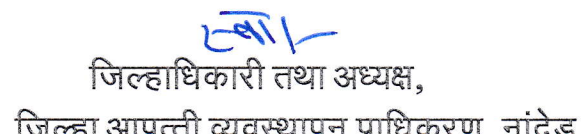 स्वा/-
जिल्हाधिकारी तथा अध्यक्ष,
जिल्हा आपत्ती व्यवस्थापन प्राधिकरण, नांदेड